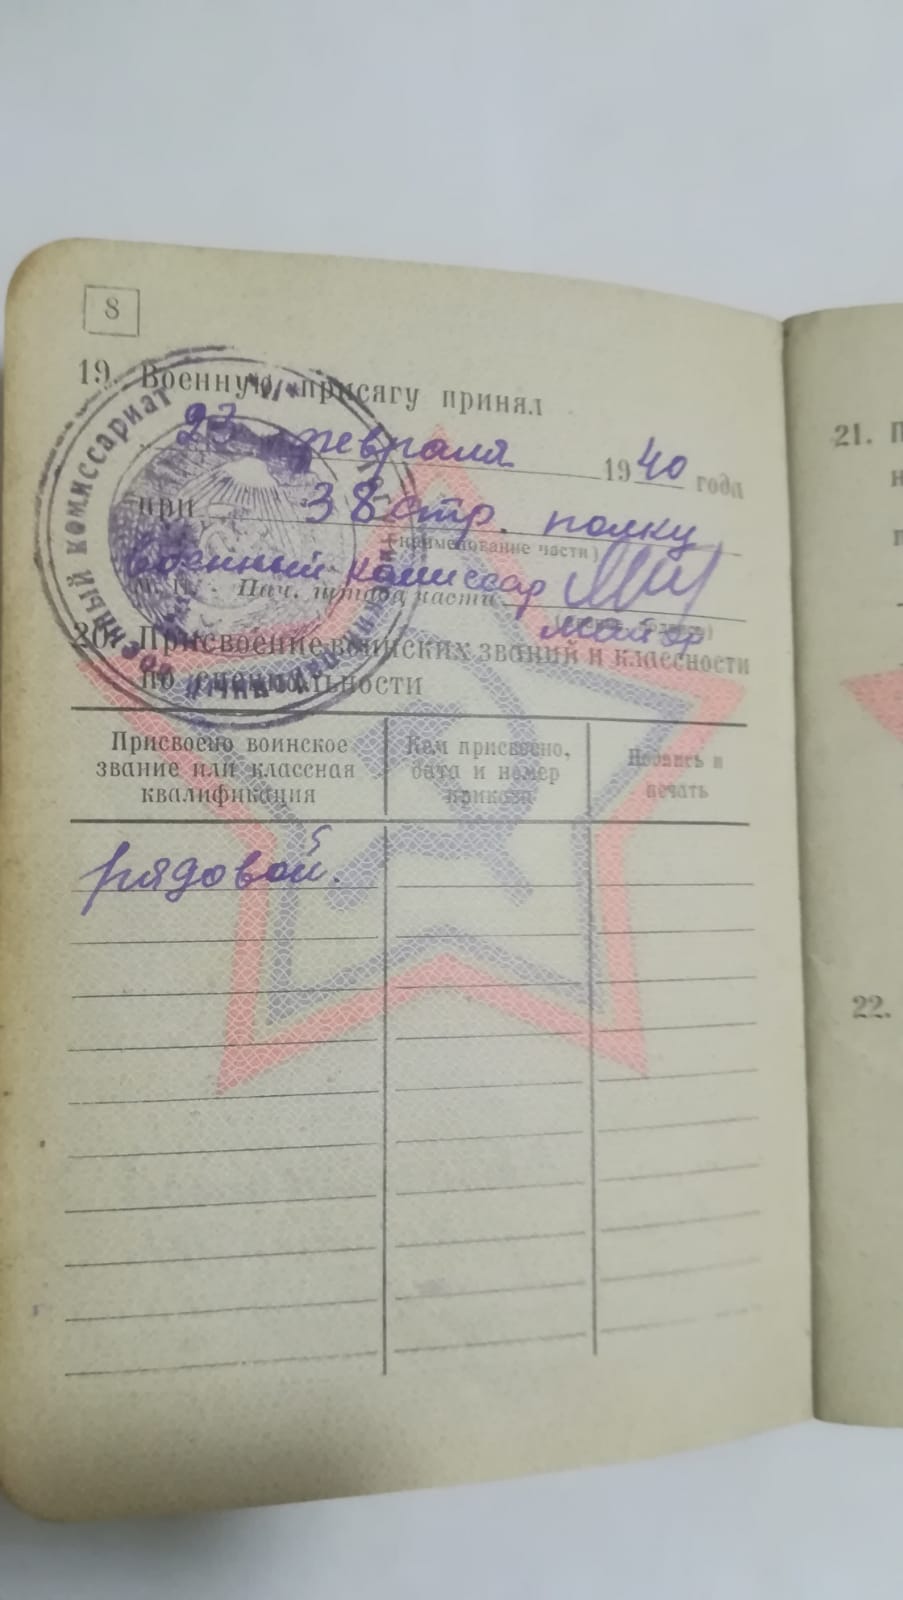 8
19. Военную присягу принял
23 февраля 1940 года
при 38 стр. полку
(наименование части)
Военный комиссар
М. П. Нач. штаба части
майор
20. Присвоение воинских званий и классности
по специальности
Присвоено воинское
звание или классная
квалификация
Кем присвоено,
дата и номер
приказа
Подпись и
печать
рядовой.
военный комиссариат
21. П
н
п
22.